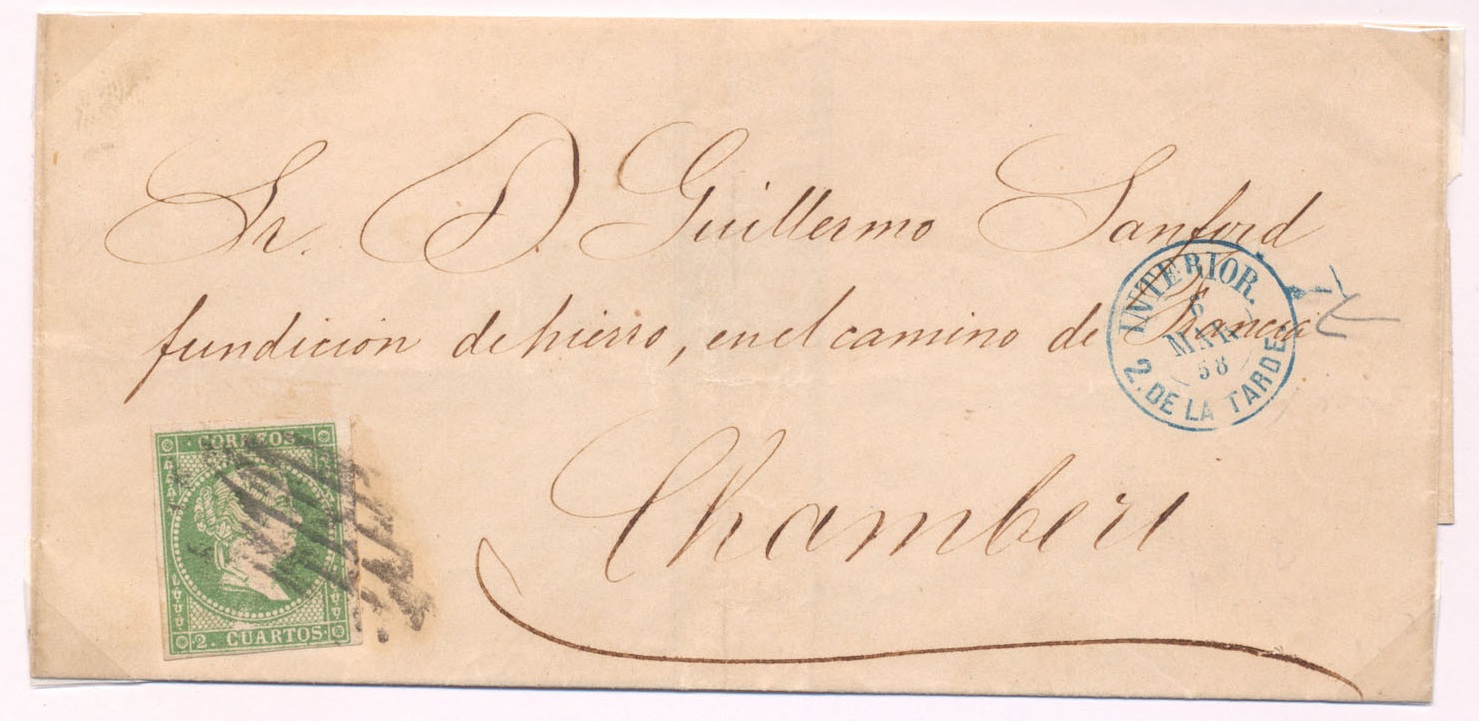 Sr. D. Guillermo Sanford
fundicion de hierro, en el camino de Francia
Chamberi
INTERIOR.
6
MAR
58
2. DE LA TARDE
CORREOS
2. CUARTOS